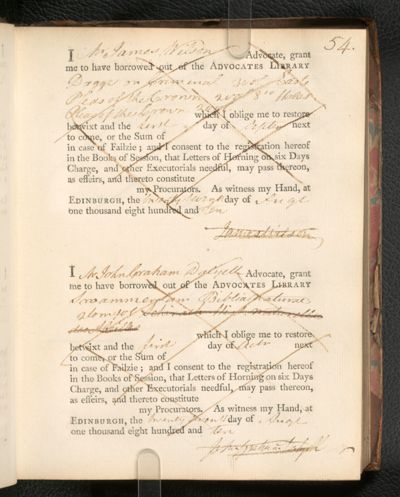 54.
I Mr James Wilson Advocate, grant
me to have borrowed out of the ADVOCATES LIBRARY
Pleas of the Crown
Pleas of the Crown which I oblige me to restore
betwixt and the day of next
to come, or the Sum of
in case of Failzie; and I consent to the registration hereof
in the Books of Session, that Letters of Horning on six Days
Charge, and other Executorials needful, may pass thereon,
as effeirs, and thereto constitute
my Procurators. As witness my Hand, at
EDINBURGH, the day of Augt
one thousand eight hundred and ten
James Wilson
I Mr John Graham Dalyell Advocate, grant
me to have borrowed out of the ADVOCATES LIBRARY
Swammerdam Biblia Naturae
2 tom
which I oblige me to restore
betwixt and the day of next
to come, or the Sum of
in case of Failzie; and I consent to the registration hereof
in the Books of Session, that Letters of Horning on six Days
Charge, and other Executorials needful, may pass thereon,
as effeirs, and thereto constitute
my Procurators. As witness my Hand, at
EDINBURGH, the day of Augt
one thousand eight hundred and ten
John Graham Dalyell